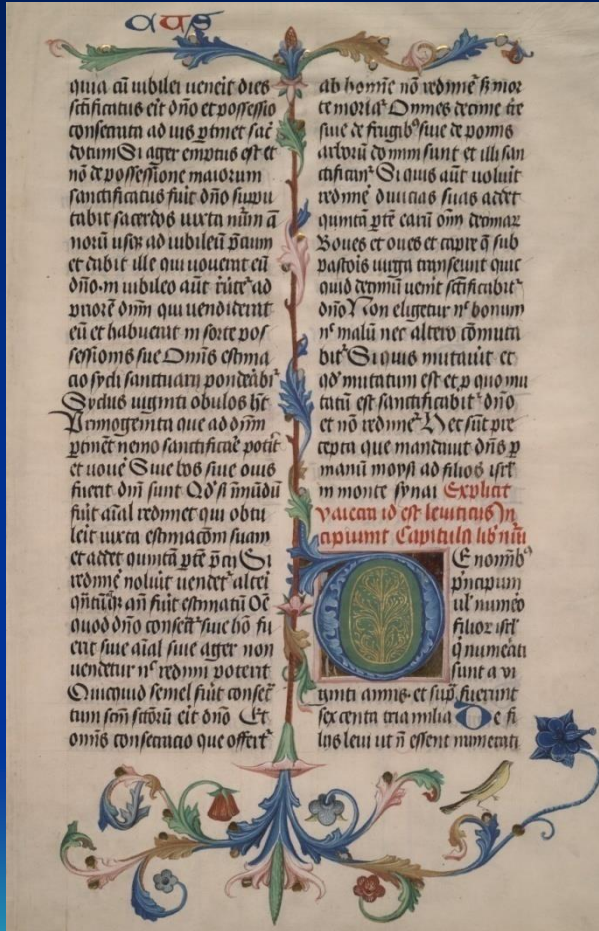 quia cū iubilei uenerit dies
sctificatus erit dño et possessio
consecrata ad ius ptinet sac̄
dotum Si ager emptus est et
nō de possessione maiorum
sanctificatus fuit dño suppu
tabit sacerdos iuxta nūm ā
norū usq ad iubileū p̄cium
et dabit ille qui uouerat eū
dño in iubileo aūt ad
priorē dñm qui uendiderat
eū et habuerat in sorte pos
sessionis sue Omīs estima
cio sycli sanctuarii
Syclus uiginti obulos hēt
Primogenita que ad dñm
ptinēt nemo sanctificaē potit
et uouē Siue bos siue ouis
fuerit dñi sunt Qd si īmūdū
fuit aīal redimet qui obtu
lerit iuxta estimacōm suam
et addet quintā ptē p̄cii Si
redimē noluit uendet altei
aū fuit estimatū Oē
quod dño siue hō fu
erit siue aīal siue ager non
uendetur n redimi poterit
Quicquid semel fuit
tum scm sctōrū eit dño Et
omīs consecracio que offert
ab homīe nō redimē s mor
te moria Omnes decime tre
siue de frugib siue de pomis
arborū domini sunt et illi san
ctificant Si quis aūt uoluit
redimē decimas suas addet
quintā ptē earū Oīm decimar
Boues et oues et capre q sub
pastoris uirga transeunt quic
quid decimū uenit sctificabit
dño Non eligetur n bonum
n malū nec altero cōmuta
bit Si quis mutauit et
qd mutatum est et p quo mu
tatū est sanctificabit dño
et nō redimē Hec sūt pre
cepta que mandauit dñs p
manū moysi ad filios isrl
in monte synai Explicit
vaiecra id est leuiticus In
cipiunt Capitula lib nūi
E nomīb
principum
uł numeo
filior isrl
q numeāti
sunt a vi
ginti annis et sup fuerunt
sex centa tria milia De fi
liis leui ut ñ essent numerati